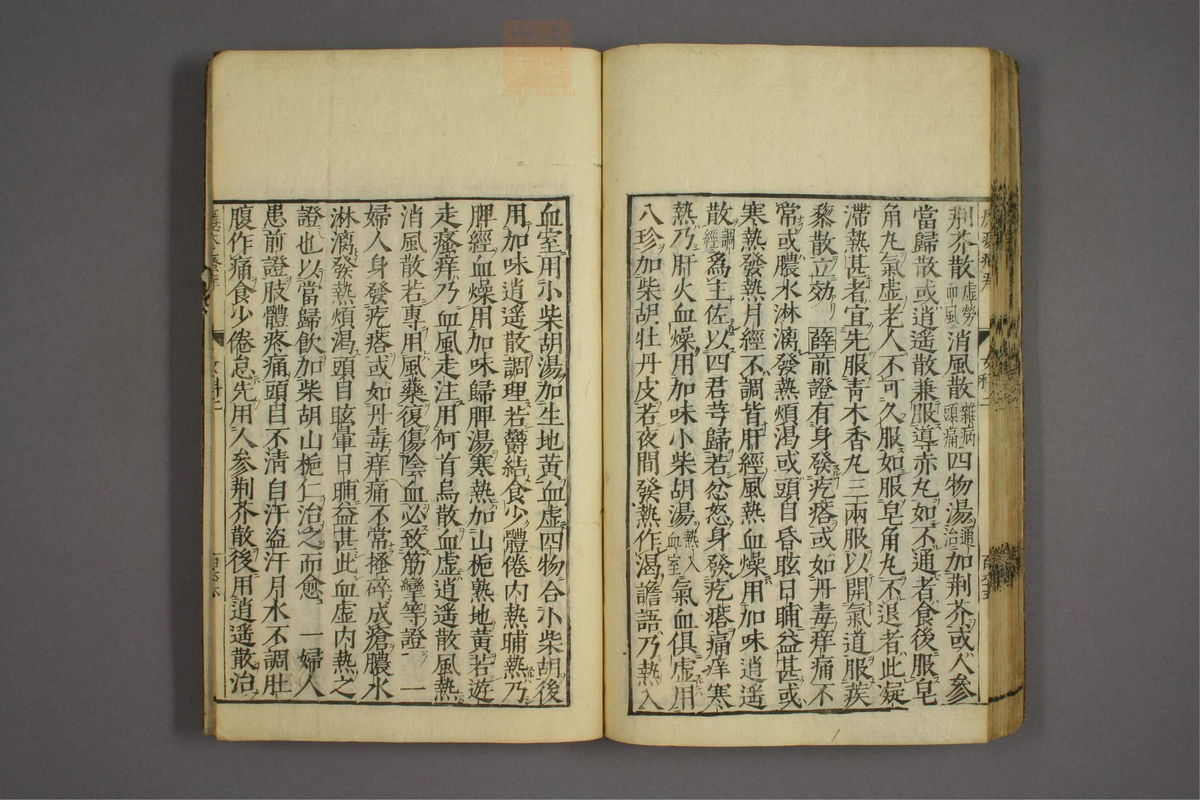 荆芥散虚勞血風消風散雜病頭痛四物湯通治加荆芥或人參
當歸散或逍遥散兼服導赤丸如不通者食後服皂
角丸氣虚老人不可久服如服皂角丸不退者此凝
滞熱甚者宜先服靑木香丸三兩服以開氣道服蒺
藜散立効 薛前證有身發疙瘩或如丹毒痒痛不
常或膿水淋漓發熱煩渴或頭目昏眩日晡益甚或
寒熱發熱月經不調皆肝經風熱血燥用加味逍遥
散調經爲主佐以四君芎歸若忿怒身發疙瘩痛痒寒
熱乃肝火血燥用加味小柴胡湯熱入血室氣血俱虚用
八珍加柴胡牡丹皮若夜間發熱作渴譫語乃熱入
血室用小柴胡湯加生地黄血虚四物合小柴胡後
用加味逍遥散調理若欝結食少體倦内熱晡熱乃
脾經血燥用加味歸脾湯寒熱加山梔熟地黄若遊
走瘙痒乃血風走注用何首烏散血虚逍遥散風熱
消風散若専用風藥復傷陰血必致筋攣等證 一
婦人身發疙瘩或如丹毒痒痛不常搔碎成瘡膿水
淋漓發熱煩渴頭目眩暈日晡益甚此血虚内熱之
證也以當歸飲加柴胡山梔仁治之而愈 一婦人
患前證肢體疼痛頭目不淸自汗盗汗月水不調肚
腹作痛食少倦怠先用人參荆芥散後用逍遥散治